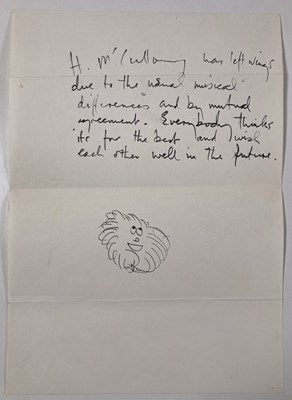 H. McCullough has left wings
due to the "usual musical
differences" and by mutual
agreement. Everybody thinks
its for the best and wish
each other well in the future.